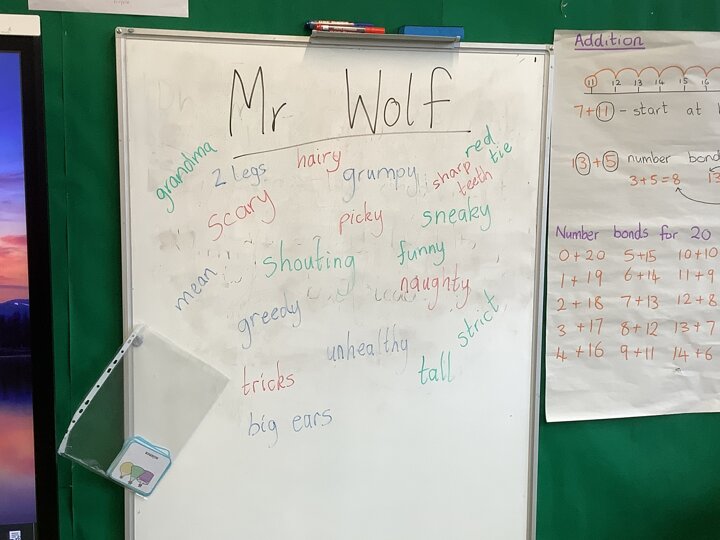 Mr Wolf
grandma
2 legs
hairy
grumpy
sharp
teeth
red
tie
scary
picky
sneaky
shouting
funny
mean
naughty
greedy
strict
unhealthy
tricks
tall
big ears
Addition
11 12 13 14 15 16
7+11 - start at
13+5 number bond
3+5=8 13
Number bonds for 20
0+20 5+15 10+10
1+19 6+14 11+9
2+18 7+13 12+8
3+17 8+12 13+7
4+16 9+11 14+6